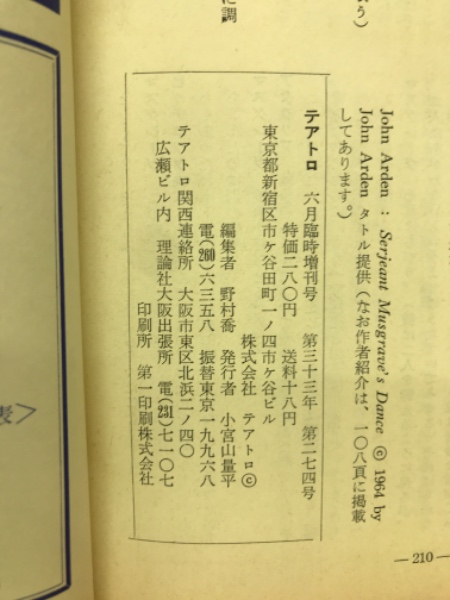 よう）
に調
John Arden : Serjeant Musgrave's Dance © 1964 by
John Arden タトル提供（なお作者紹介は、一〇八頁に掲載
してあります。）
テアトロ 六月臨時増刊号 第三十三年 第二七四号
特価二八〇円 送料十八円
東京都新宿区市ケ谷田町一ノ四市ケ谷ビル
株式会社 テアトロ©
編集者 野村喬 発行者 小宮山量平
電(260)六三五八 振替東京一九九六八
テアトロ関西連絡所 大阪市東区北浜二ノ四〇
広瀬ビル内 理論社大阪出張所 電(231)七一〇七
印刷所 第一印刷株式会社
—210—